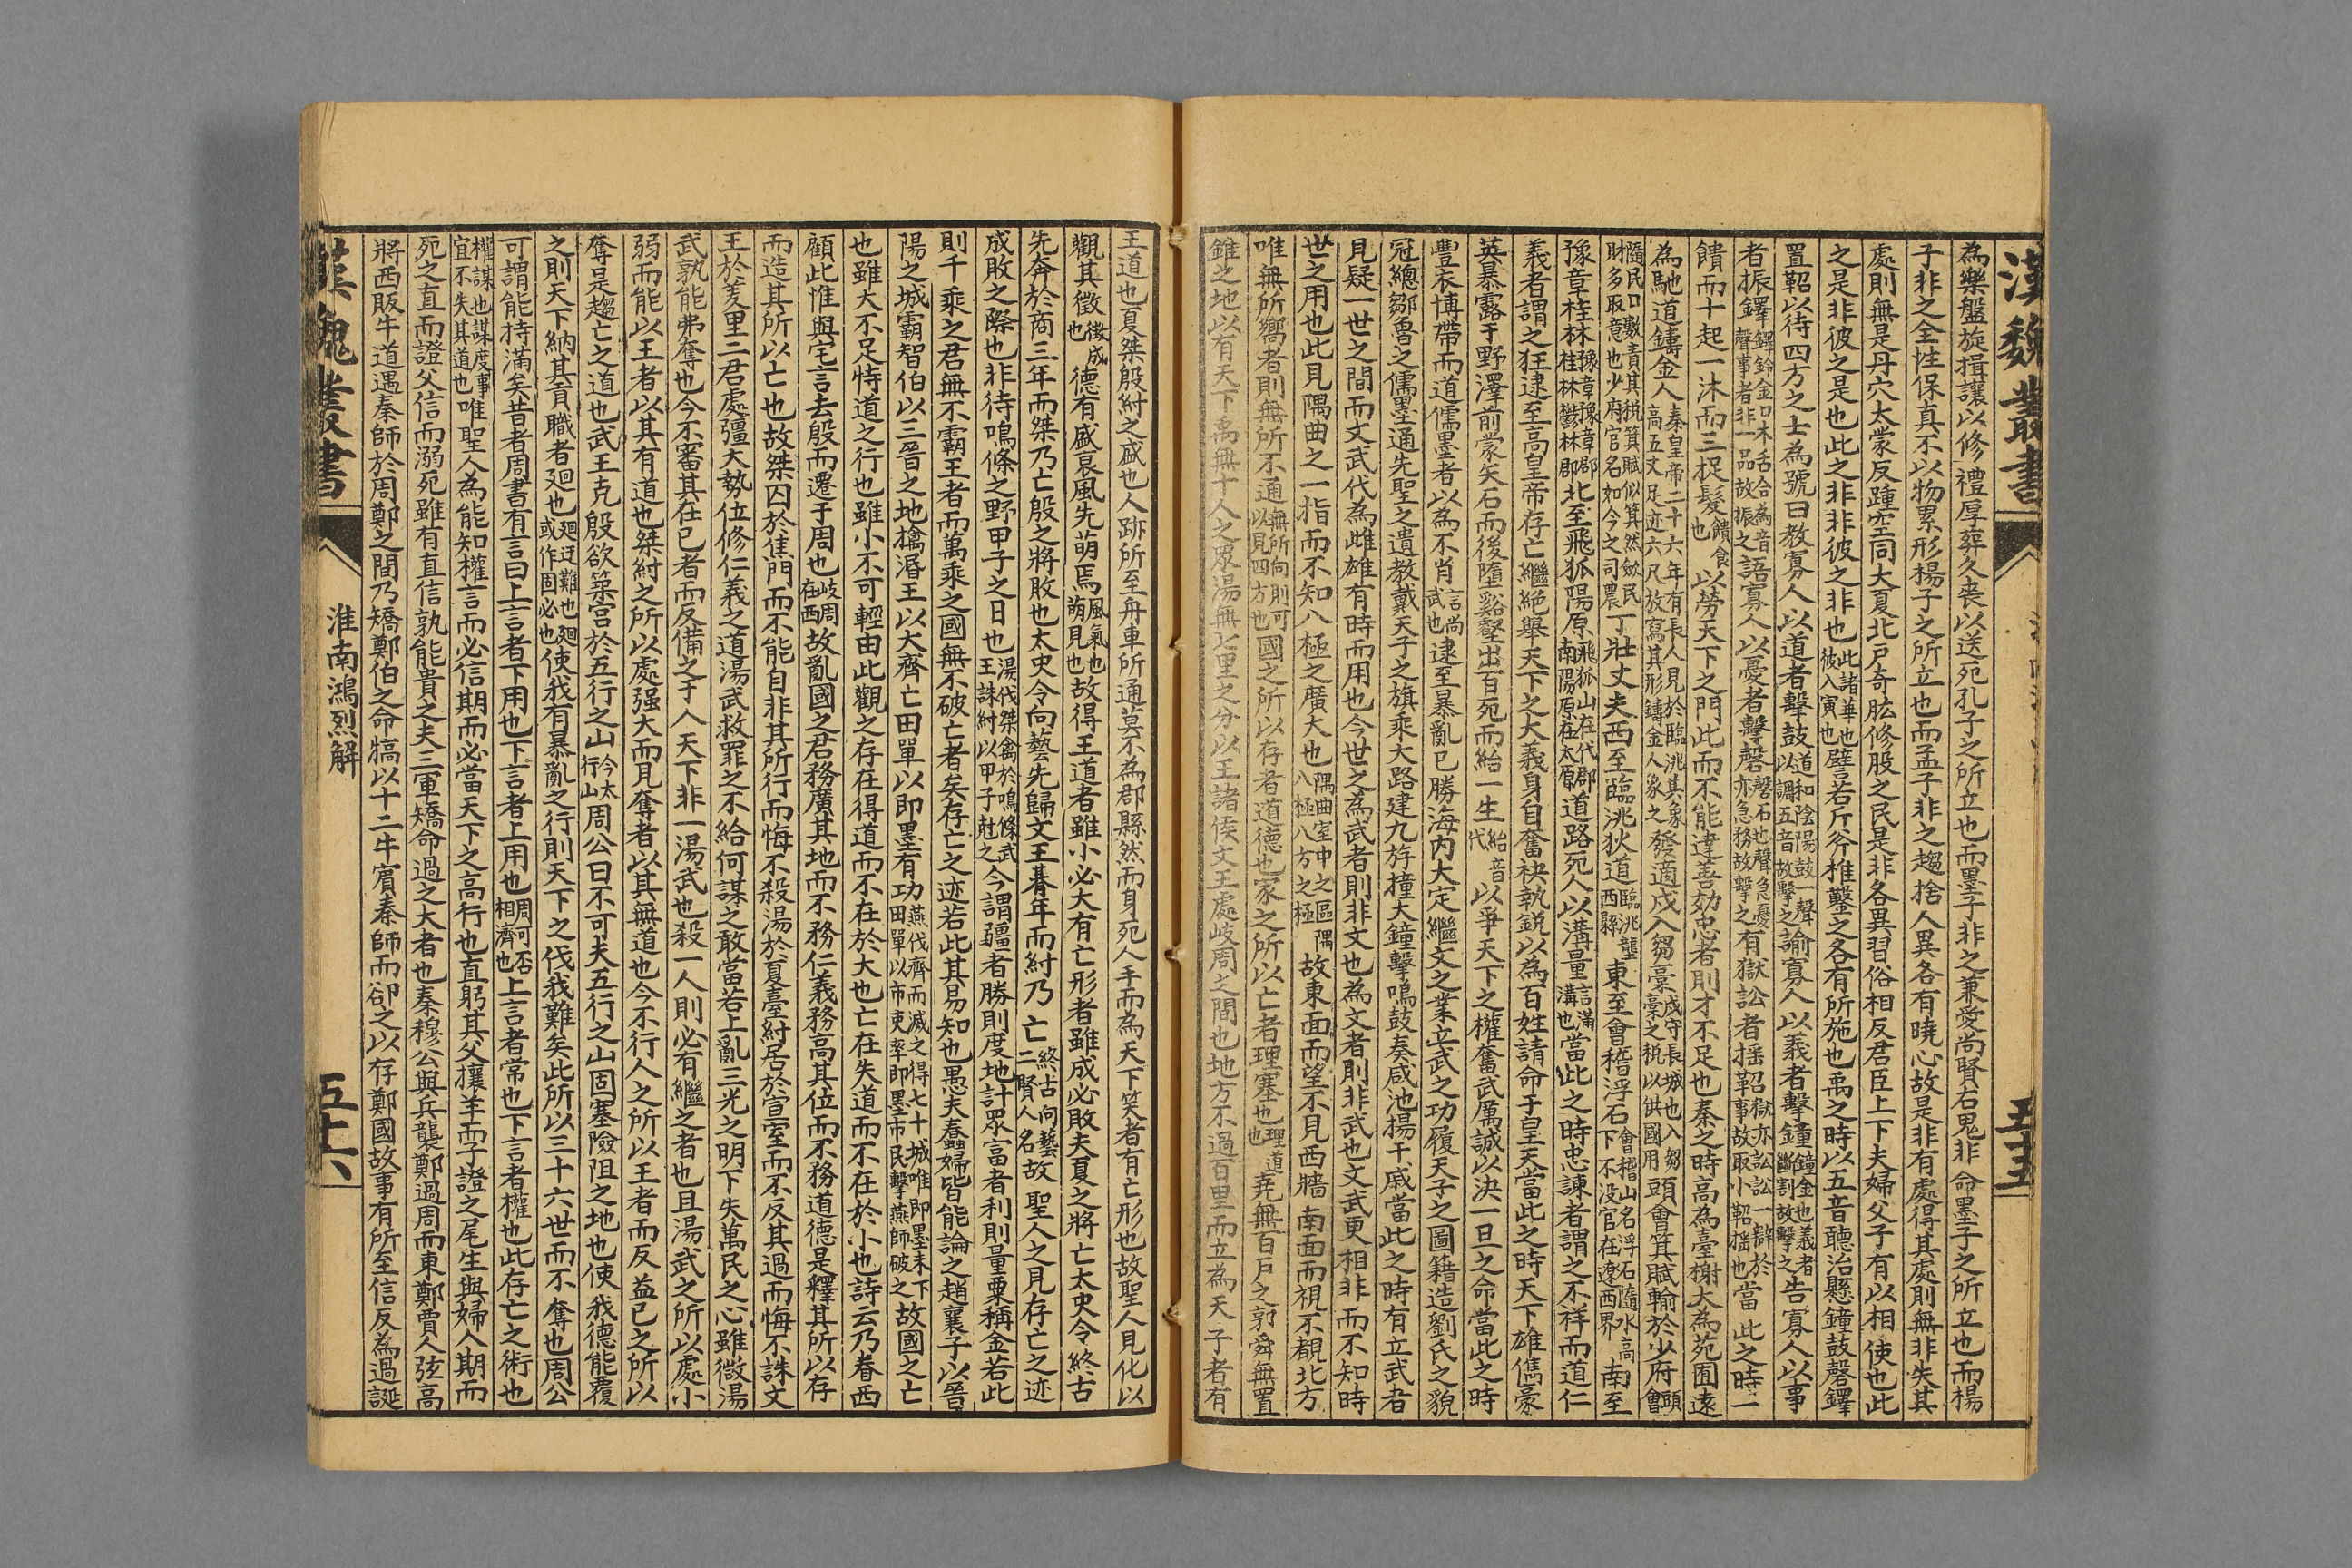 漢魏叢書
五十五
為樂盤旋揖讓以修禮厚葬久喪以送死孔子之所立也而墨子非之兼愛尚賢右鬼非命墨子之所立也而楊
子非之全性保真不以物累形楊子之所立也而孟子非之趨捨人異各有曉心故是非有處得其處則無非失其
處則無是丹穴太蒙反踵空同大夏北戶奇肱修股之民是非各異習俗相反君臣上下夫婦父子有以相使也此
之是非彼之是也此之非非彼之非也此諸華也彼入寅也譬若斤斧椎鑿之各有所施也禹之時以五音聽治懸鐘鼓磬鐸
置鞀以待四方之士為號曰教寡人以道者擊鼓道和陰陽鼓一聲以調五音故擊之諭寡人以義者擊鐘鐘金也義者斷割故擊之告寡人以事
者振鐸鐸鈴金口木舌合為音聲事者非一品故振之語寡人以憂者擊磬磬石也聲急憂亦急務故擊之有獄訟者搖鞀獄亦訟訟一辯於事故取小鞀搖也當此之時一
饋而十起一沐而三捉髮饋食也以勞天下之門此而不能達善効忠者則才不足也秦之時高為臺榭大為苑囿遠
為馳道鑄金人秦皇帝二十六年有長人見於臨洮其象高五丈足迹六尺放寫其形鑄金人象之發適戍入芻槀戍守長城也入芻槀之稅以供國用頭會箕賦輸於少府頭會
隨民口數責其稅箕賦似箕然斂民財多取意也少府官名如今之司農丁壯丈夫西至臨洮狄道臨洮隴西縣東至會稽浮石會稽山名浮石隨水高下不没官在遼西界南至
豫章桂林豫章豫章郡桂林鬱林郡北至飛狐陽原飛狐山在代郡南陽原在太原道路死人以溝量言滿溝也當此之時忠諫者謂之不祥而道仁
義者謂之狂逮至高皇帝存亡繼絕舉天下之大義身自奮袂執銳以為百姓請命于皇天當此之時天下雄儁豪
英暴露于野澤前蒙矢石而後墮谿壑出百死而紿一生紿音代以爭天下之權奮武厲誠以決一旦之命當此之時
豐衣博帶而道儒墨者以為不肖言尚武也逮至暴亂已勝海內大定繼文之業立武之功履天子之圖籍造劉氏之貌
冠總鄒魯之儒墨通先聖之遺教戴天子之旗乘大路建九斿撞大鐘擊鳴鼓奏咸池揚干戚當此之時有立武者
見疑一世之間而文武代為雌雄有時而用也今世之為武者則非文也為文者則非武也文武更相非而不知時
世之用也此見隅曲之一指而不知八極之廣大也隅曲室中之區隅八極八方之極故東面而望不見西牆南面而視不覩北方
唯無所嚮者則無所不通無所向則可以見四方也國之所以存者道德也家之所以亡者理塞也理道也堯無百戶之郭舜無置
錐之地以有天下禹無十人之眾湯無七里之分以王諸侯文王處岐周之間也地方不過百里而立為天子者有
王道也夏桀殷紂之盛也人跡所至舟車所通莫不為郡縣然而身死人手而為天下笑者有亡形也故聖人見化以
觀其徵徵成也德有盛衰風先萌焉風氣也萌見也故得王道者雖小必大有亡形者雖成必敗夫夏之將亡太史令終古
先奔於商三年而桀乃亡殷之將敗也太史令向藝先歸文王朞年而紂乃亡終古向藝二賢人名故聖人之見存亡之迹
成敗之際也非待鳴條之野甲子之日也湯伐桀禽於鳴條武王誅紂以甲子尅之今謂彊者勝則度地計眾富者利則量粟稱金若此
則千乘之君無不霸王者而萬乘之國無不破亡者矣存亡之迹若此其易知也愚夫惷婦皆能論之趙襄子以晉
陽之城霸智伯以三晉之地擒湣王以大齊亡田單以即墨有功燕伐齊而滅之得七十城唯即墨未下田單以市吏率即墨市民擊燕師破之故國之亡
也雖大不足恃道之行也雖小不可輕由此觀之存在得道而不在於大也亡在失道而不在於小也詩云乃眷西
顧此惟與宅言去殷而遷于周也岐周在西故亂國之君務廣其地而不務仁義務高其位而不務道德是釋其所以存
而造其所以亡也故桀囚於焦門而不能自非其所行而悔不殺湯於夏臺紂居於宣室而不反其過而悔不誅文
王於羑里二君處彊大勢位修仁義之道湯武救罪之不給何謀之敢當若上亂三光之明下失萬民之心雖微湯
武孰能弗奪也今不審其在己者而反備之于人天下非一湯武也殺一人則必有繼之者也且湯武之所以處小
弱而能以王者以其有道也桀紂之所以處强大而見奪者以其無道也今不行人之所以王者而反益己之所以
奪是趨亡之道也武王克殷欲築宮於五行之山今太行山周公曰不可夫五行之山固塞險阻之地也使我德能覆
之則天下納其貢職者廻也廻迂難也廻或作固必也使我有暴亂之行則天下之伐我難矣此所以三十六世而不奪也周公
可謂能持滿矣昔者周書有言曰上言者下用也下言者上用也周可否相濟也上言者常也下言者權也此存亡之術也
權謀也謀度事宜不失其道也唯聖人為能知權言而必信期而必當天下之高行也直躬其父攘羊而子證之尾生與婦人期而
死之直而證父信而溺死雖有直信孰能貴之夫三軍矯命過之大者也秦穆公與兵襲鄭過周而東鄭賈人弦高
將西販牛道遇秦師於周鄭之間乃矯鄭伯之命犒以十二牛賔秦師而卻之以存鄭國故事有所至信反為過誕
漢魏叢書
淮南鴻烈解
五十六